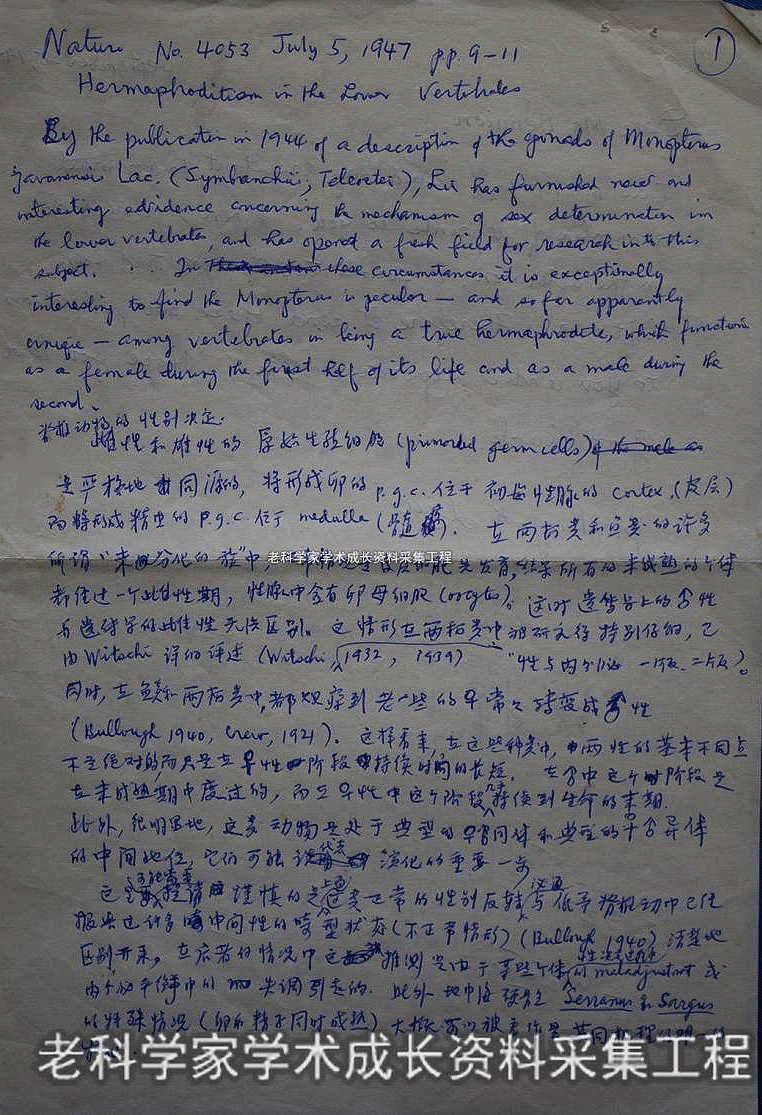 ①
Nature No. 4053 July 5, 1947 pp. 9-11
Hermaphroditism in the Lower Vertebrates
By the publication in 1944 of a description of the gonads of Monopterus
javanensis Lac. (Symbranchii, Teleostei), Liu has furnished new and
interesting evidence concerning the mechanism of sex determination in
the lower vertebrates, and has opened a fresh field for research into this
subject. In these circumstances it is exceptionally
interesting to find the Monopterus is peculiar — and so far apparently
unique — among vertebrates in being a true hermaphrodite, which functions
as a female during the first half of its life and as a male during the
second.
脊椎动物的性别决定:
雌性和雄性的原始生殖细胞 (primordial germ cells)
是严格地同源的, 将形成卵的 p.g.c. 位于初级性腺的 cortex (皮层)
而将形成精虫的 p.g.c. 位于 medulla (髓部). 在两栖类和鱼类的许多
所谓"未分化的族"中, 结果所有的未成熟的个体
都经过一个雌性期, 性腺中含有卵母细胞 (oocytes). 这时遗传学上的♂性
与遗传学的雌性无法区别. 这情形在两栖类中 特别仔细, 已
由 Witschi 详细评述 (Witschi, 1932, 1939) "性与内分泌 一版. 二版).
同时, 在鱼和两栖类中, 都观察到老一些的♀常常转变成♂性
(Bullough 1940, Crew, 1921). 这样看来, 在这些种类中, 两性的基本不同点
不是绝对的而只是在♀性阶段持续时间的长短. 在♂中这个阶段是
在未成熟期中度过的, 而在♀性中这个阶段持续到生命的末期.
此外, 很明显地, 这类动物是处于典型的♀♂同体和典型的♀♂异体
的中间地位, 它们可能代表演化的重要一步
这里 谨慎的是 正常的性别反转与低等脊椎动中已经
报告过许多中间性的 状态 (不正常情形) (Bullough 1940) 清楚地
区别开来. 在后者的情况中 推测是由于某些个体 的 maladjustment 或
内分泌平衡中的失调引起的. 此外地中海 Serranus & Sargus
的特殊情况 (卵和精子同时成熟) 大概可以被
老科学家学术成长资料采集工程
老科学家学术成长资料采集工程